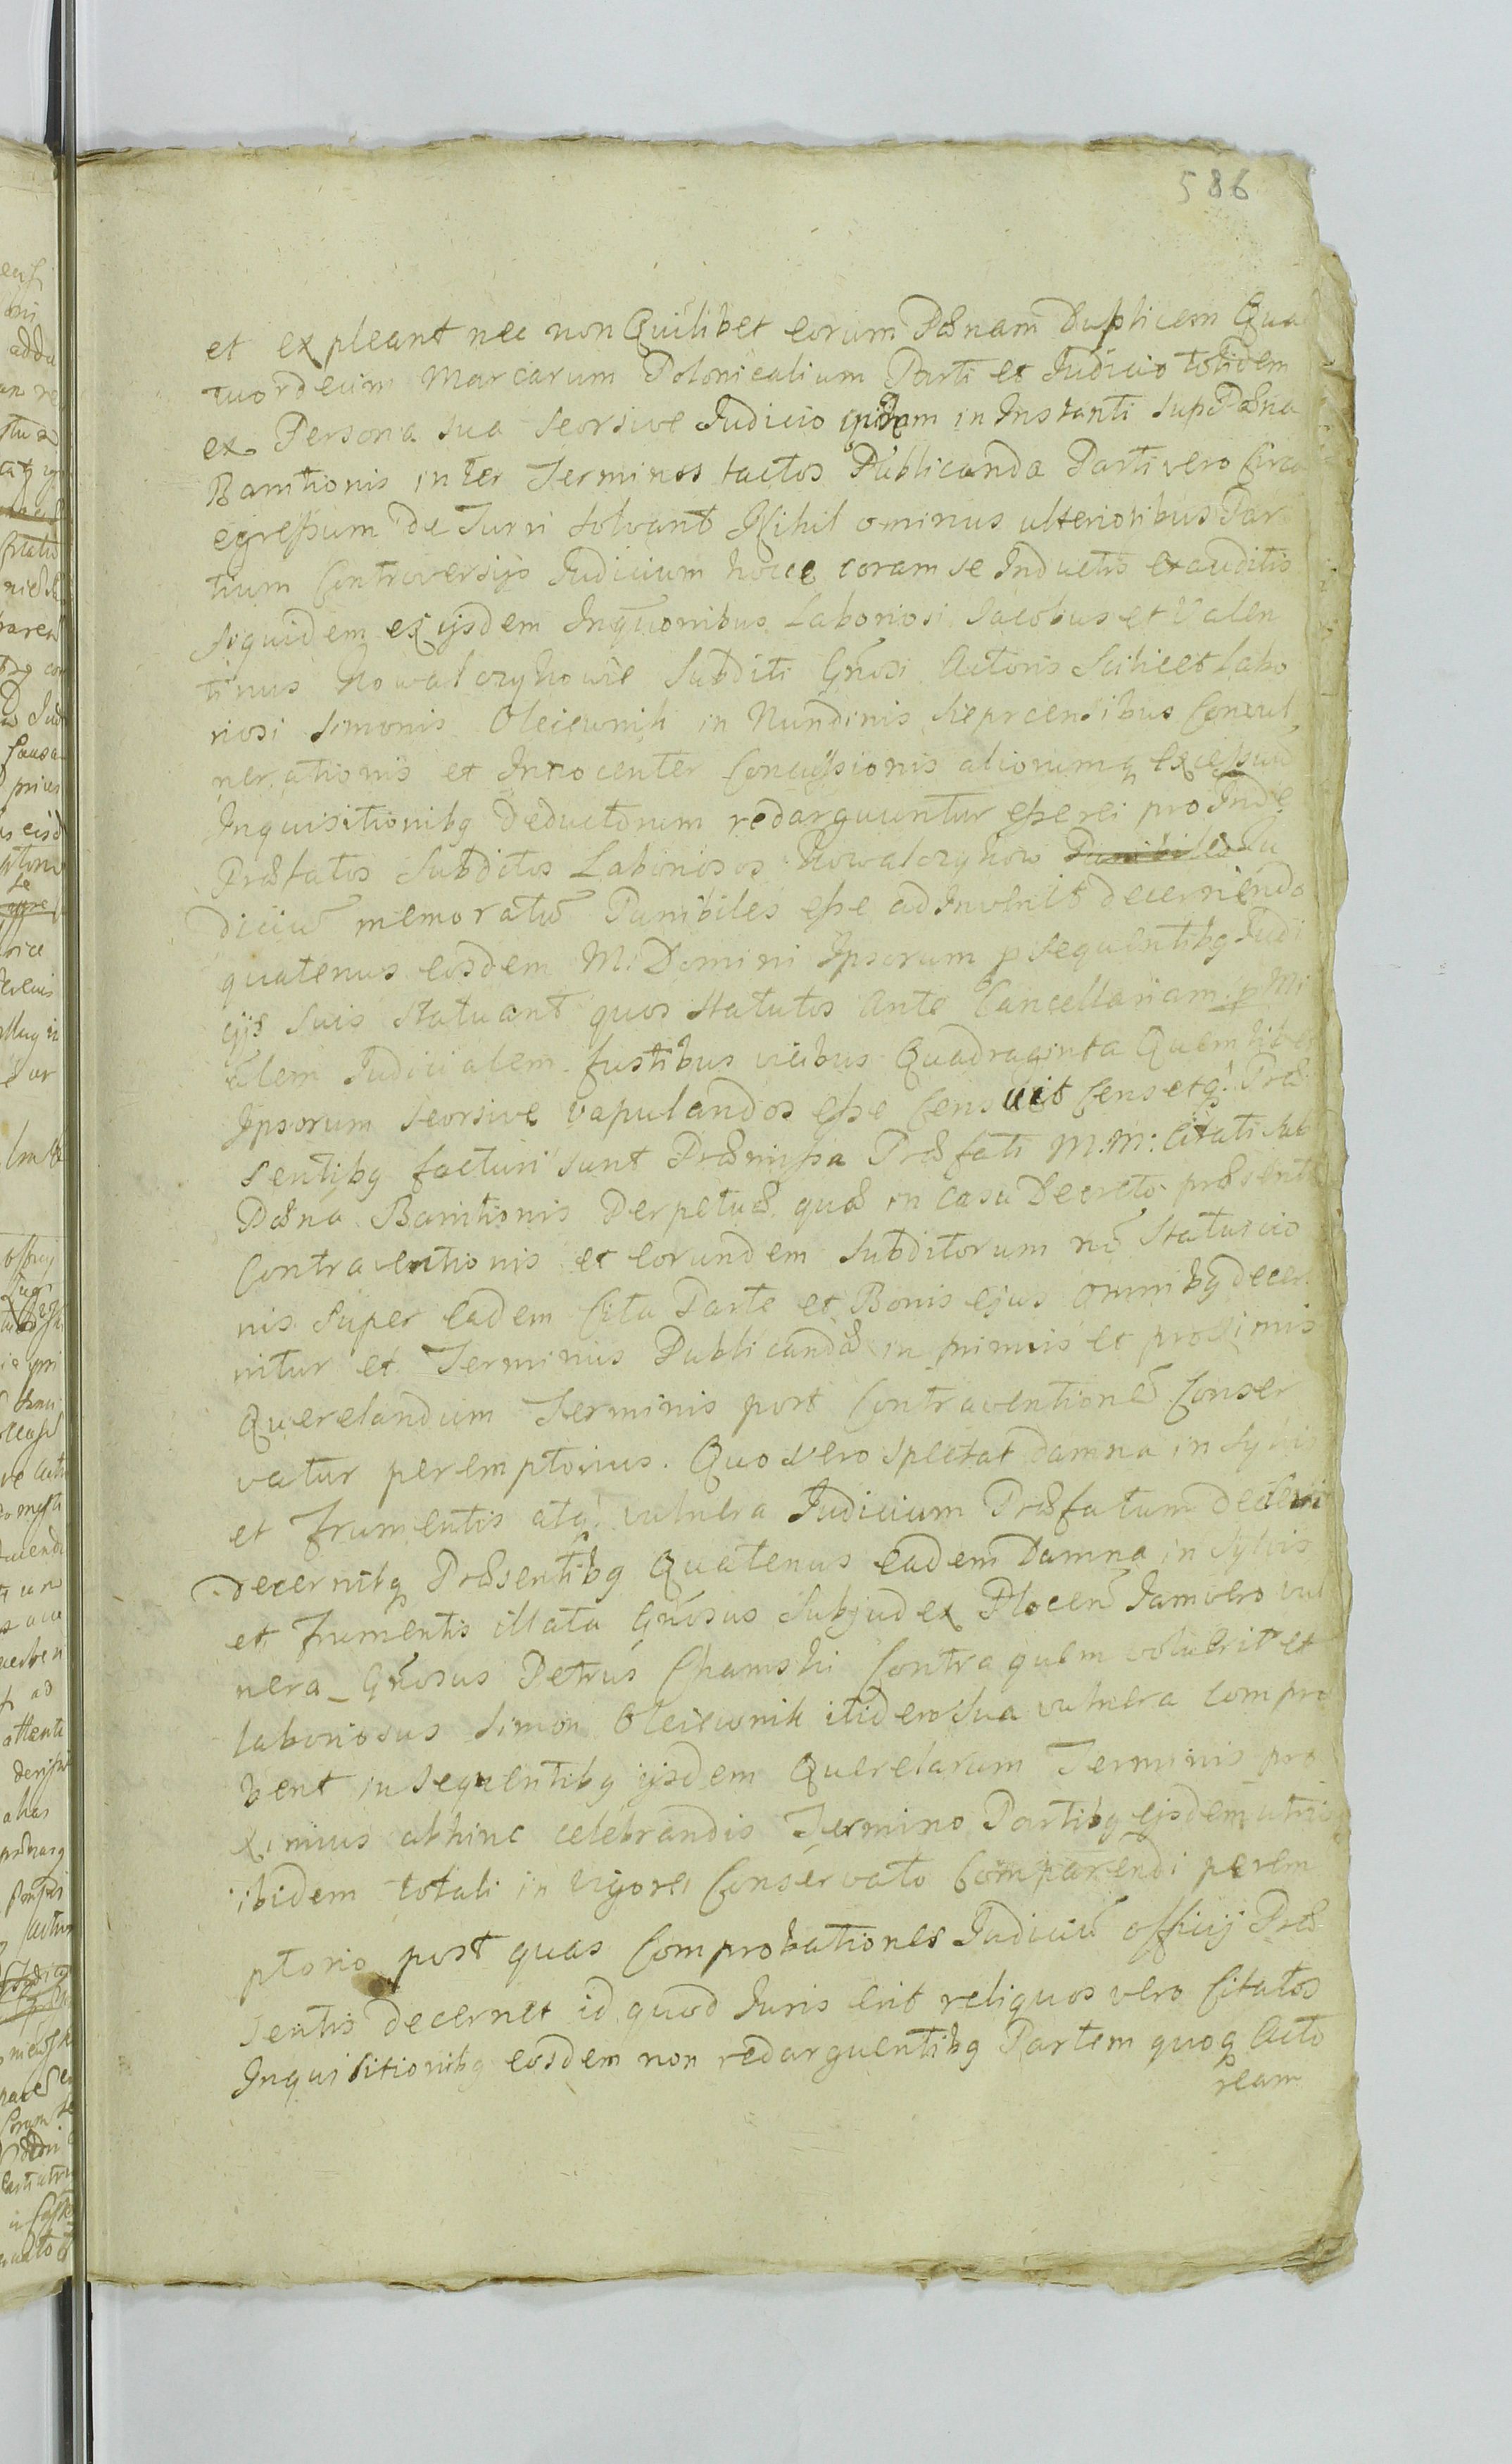 586
et expleant nec non Quilibet eorum Pænam Duplicem Qua
tuordecim Marcarum Polonicalium Parti et Judicio totidem
ex Persona sua seorsive Judicio quidem in Instanti sup Pæna
Banitionis inter Terminos tactos Publicanda Parti vero Circa
egressum de Turri solvant Nihil ominus ulterioribus Par
tium Controversijs Judicium hocce coram se Inductis exauditis
siquidem ex ijsdem Inqũonibus Laboriosi Jacobus et Valen
tinus Nowalczykowie Subditi Gñosi Actoris Scilicet Labo
riosi Simonis Oleiewnik in Nundinis Sieprcensibus Convul
nerationis et Innocenter Concussionis aliorumq excessuũ
Inquisitionibq Deductorum redarguuntur esse rei pro Inde
Præfatos Subditos Laboriosos Nowalczykow Punibiles Ju
diciũ memoratũ Punibiles esse adInvenit decernendo
quatenus eosdem M. Domini Ipsorum p sequentibq Judi
cijs suis statuant quos statutos ante Cancellariam p Mi
alem Judicialem fustibus vicibus Quadraginta Quemlibet
Ipsorum seorsive vapulandos esse Censuit Censetq. Præ
sentibq facturi sunt Præmissa Præfati M. M: Citati sub
Pæna Banitionis Perpetuæ quæ in casu Decreto præsenti
Contraventionis et eorundem Subditorum nõ Statuicio
nis super eadem Cita Parte et Bonis ejus omnibq decer
nitur et Terminus Publicandæ in primis et proximis
Querelandum Terminis post Contraventionẽ Conser
vatur peremptorius. Quo vero spectat Damna in Sylvis
et frumentis atq. vulnera Judicium Præfatum decrevit
decernitq Præsentibq Quatenus eadem Damna in Sylvis
et frumentis illata Gñosus Subjudex Plocen̄ Jamvero vul
nera Gñosus Petrus Chamski Contra quem voluerit et
laboriosus Simon Oleiewnik itidem sua vulnera compro
bent in sequentibq ijsdem Querelarum Terminis pro
ximius abhinc celebrandis Termino Partibq ejsdem utrisq
ibidem totali in vigore Conservato Comparendi perem
ptorio post quas Comprobationes Judiciũ officij Præ
sentis decernet id quod Juris erit reliquos vero Citatos
Inquisitionibq eosdem non redarguentibq Partem quoq Acto
ream